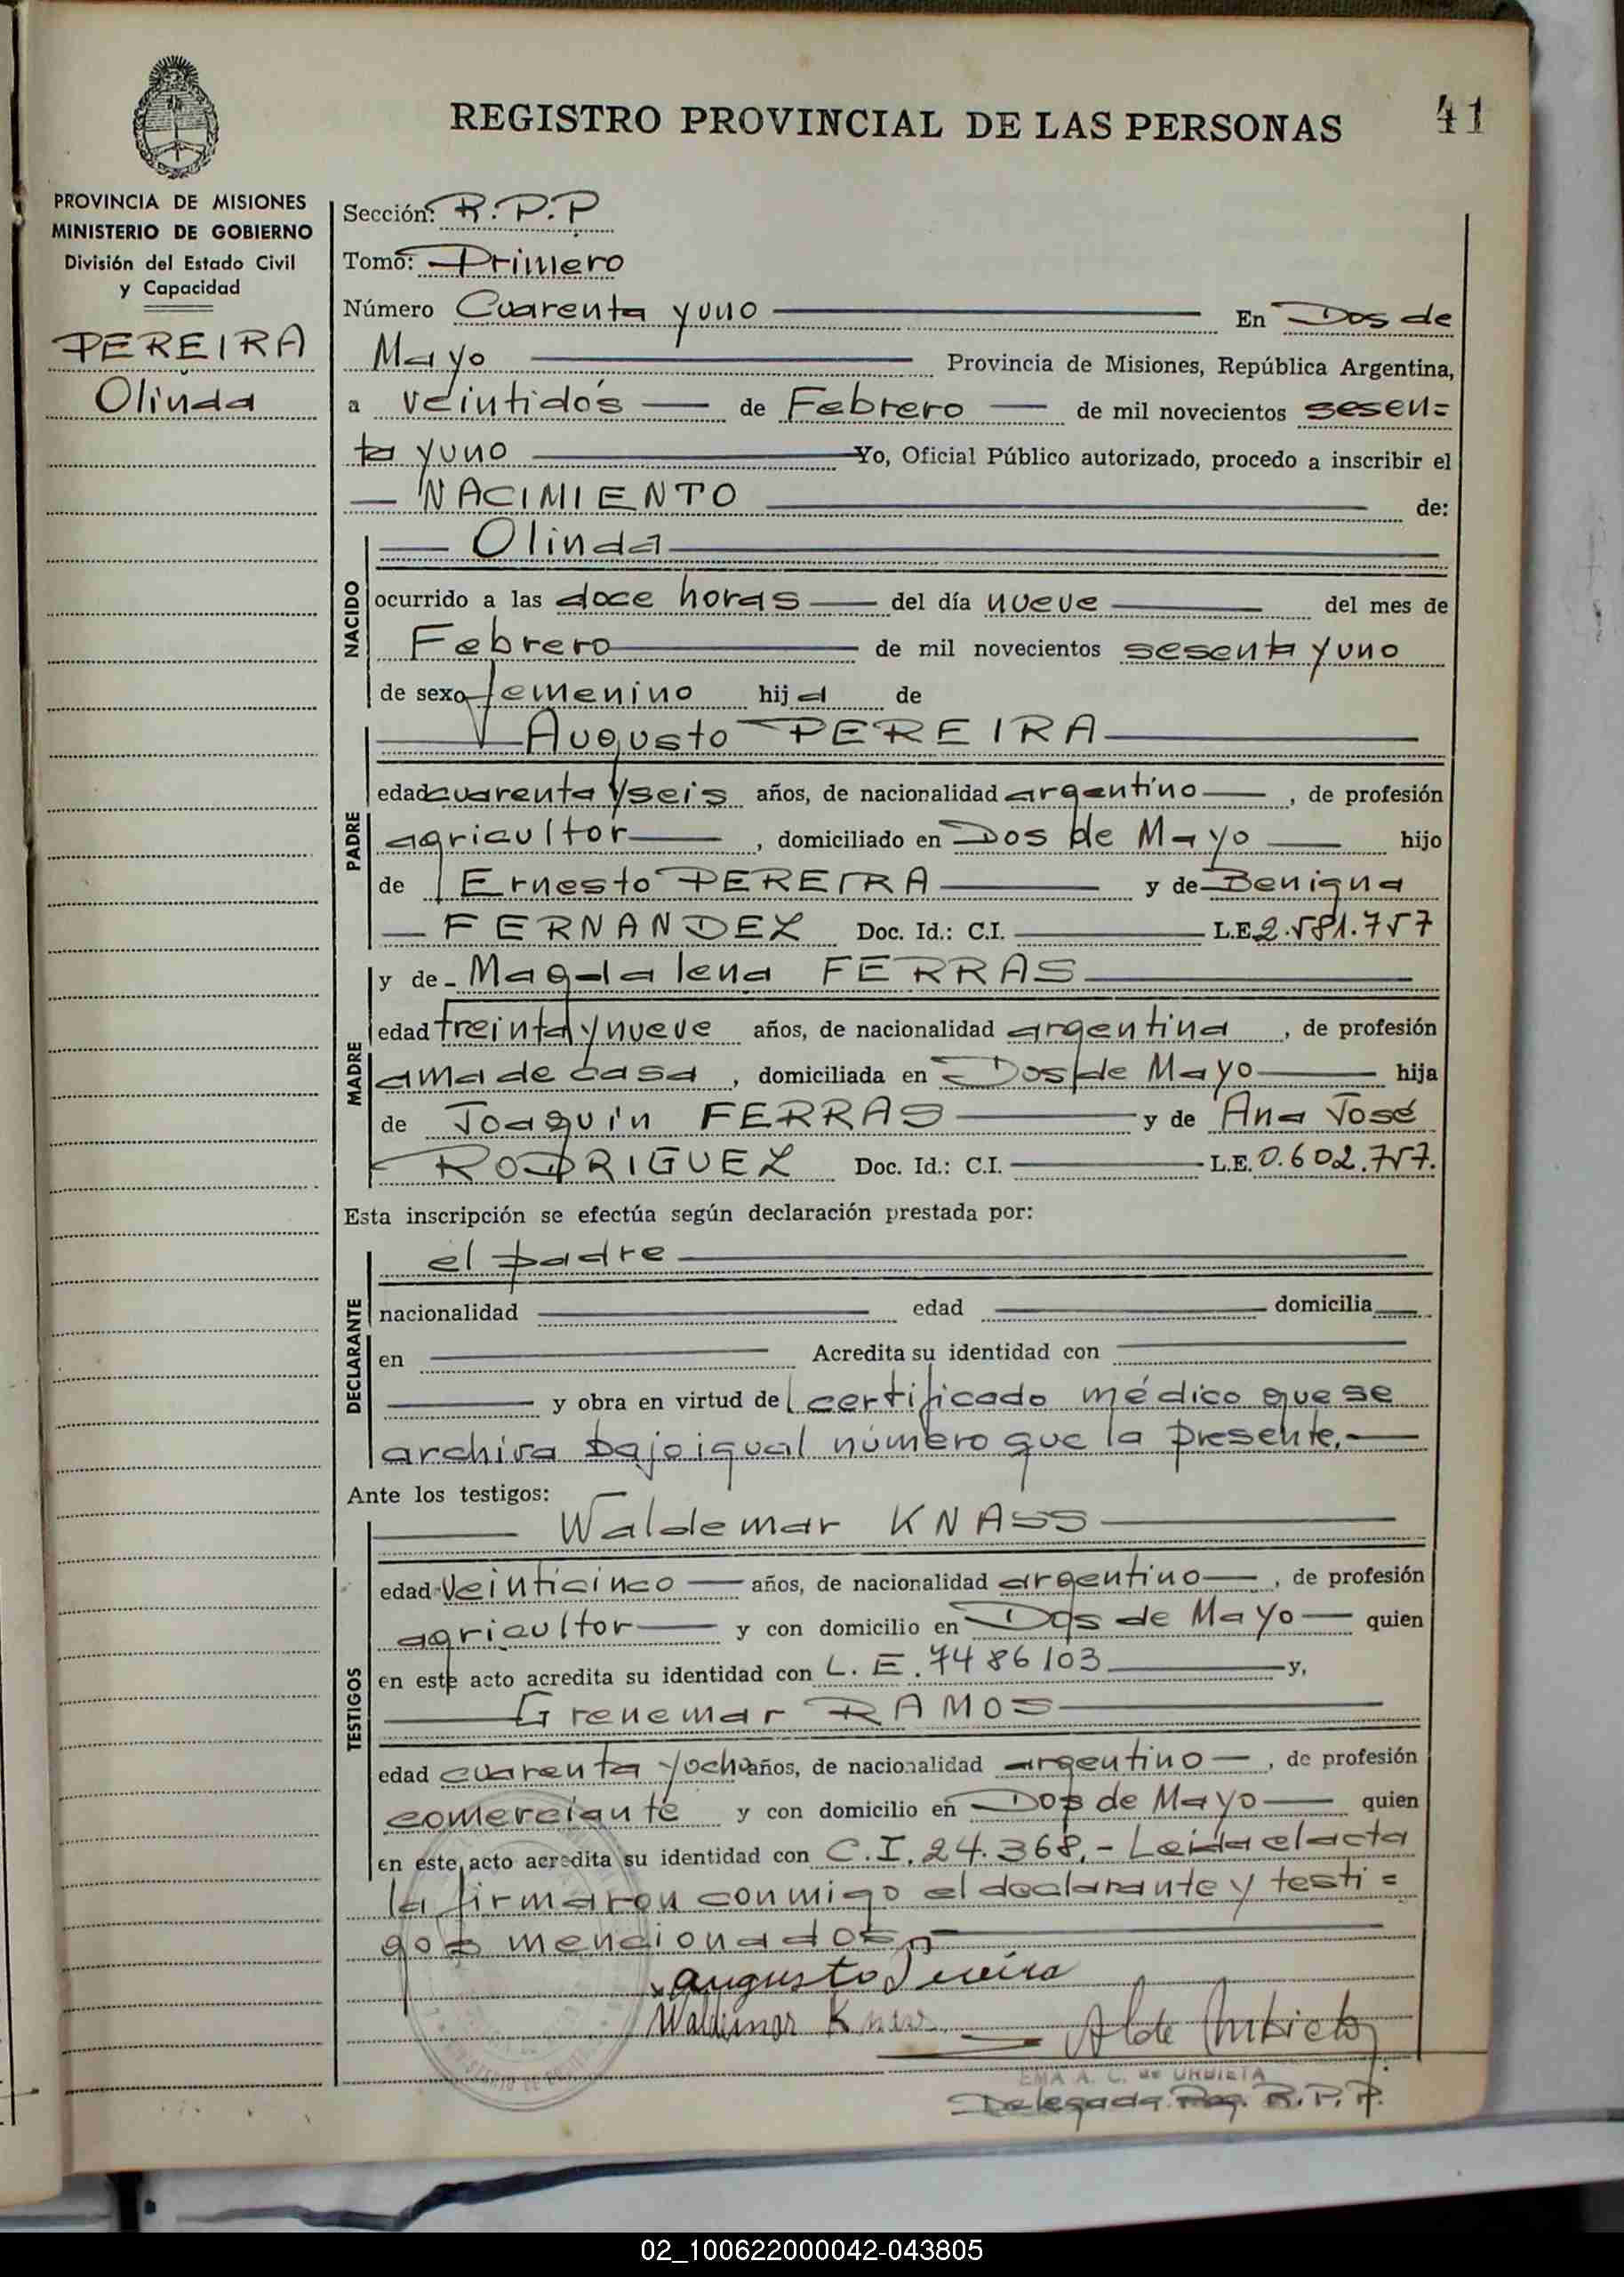 REGISTRO PROVINCIAL DE LAS PERSONAS
41
PROVINCIA DE MISIONES
MINISTERIO DE GOBIERNO
División del Estado Civil
y Capacidad
PEREIRA
Olinda
Sección: R.P.P
Tomo: Primero
Número Cuarenta y uno En Dos de
Mayo Provincia de Misiones, República Argentina,
a veintidós de Febrero de mil novecientos sesen=
ta y uno Yo, Oficial Público autorizado, procedo a inscribir el
NACIMIENTO de:
NACIDO
Olinda
ocurrido a las doce horas del día nueve del mes de
Febrero de mil novecientos sesenta y uno
de sexo femenino hija de
PADRE
Augusto PEREIRA
edad cuarenta y seis años, de nacionalidad argentino, de profesión
agricultor, domiciliado en Dos de Mayo hijo
de Ernesto PEREIRA y de Benigna
FERNANDEZ Doc. Id.: C.I. L.E. 2.581.757
MADRE
y de Magdalena FERRAS
edad treinta y nueve años, de nacionalidad argentina, de profesión
ama de casa, domiciliada en Dos de Mayo hija
de Joaquín FERRAS y de Ana José
RODRIGUEZ Doc. Id.: C.I. L.E. 0.602.757.
Esta inscripción se efectúa según declaración prestada por:
DECLARANTE
el padre
nacionalidad edad domicilia
en Acredita su identidad con
y obra en virtud de certificado médico que se
archiva bajo igual número que la presente.
Ante los testigos:
TESTIGOS
Waldemar KNASS
edad veinticinco años, de nacionalidad argentino, de profesión
agricultor y con domicilio en Dos de Mayo quien
en este acto acredita su identidad con L.E. 7486103 y,
Grenemar RAMOS
edad cuarenta y ocho años, de nacionalidad argentino, de profesión
comerciante y con domicilio en Dos de Mayo quien
en este acto acredita su identidad con C.I. 24.368.- Leida el acta
la firmaron conmigo el declarante y testi=
gos mencionados,
x Augusto Pereira
Waldemar
EMA A. C. de URBIETA
Delegada Reg. R.P.P.
02_100622000042-043805